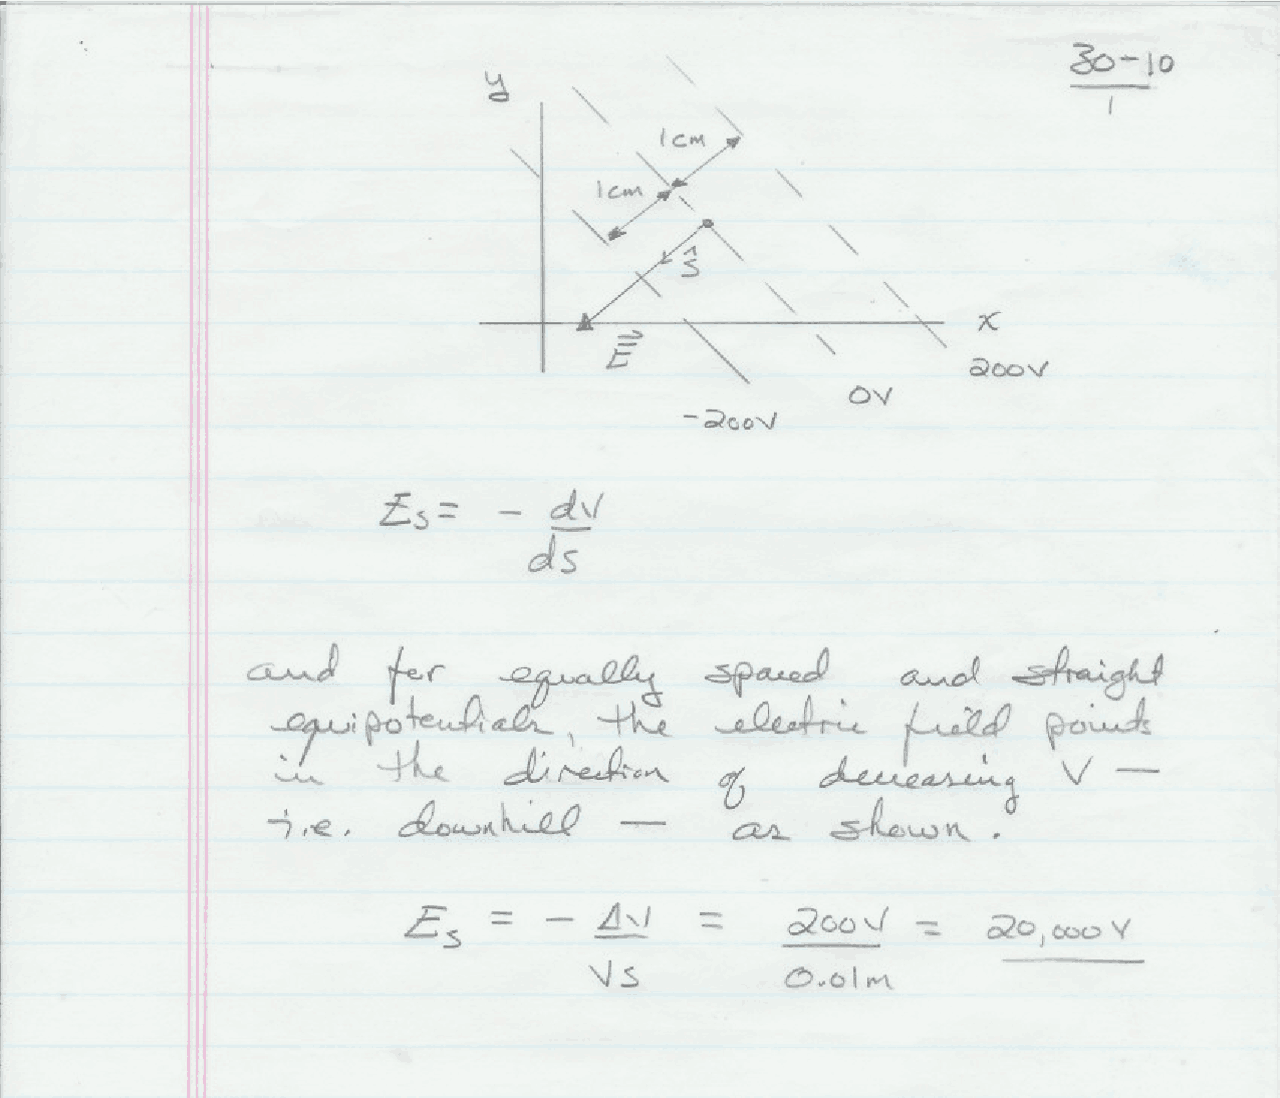 30-10
1
y
1cm
1cm
ŝ
x
E⃗
200V
0V
-200V
Es = - dV
ds
and for equally spaced and straight
equipotentials, the electric field points
in the direction of decreasing V —
i.e. downhill — as shown.
Es = - ΔV = 200V = 20,000V
VS 0.01m